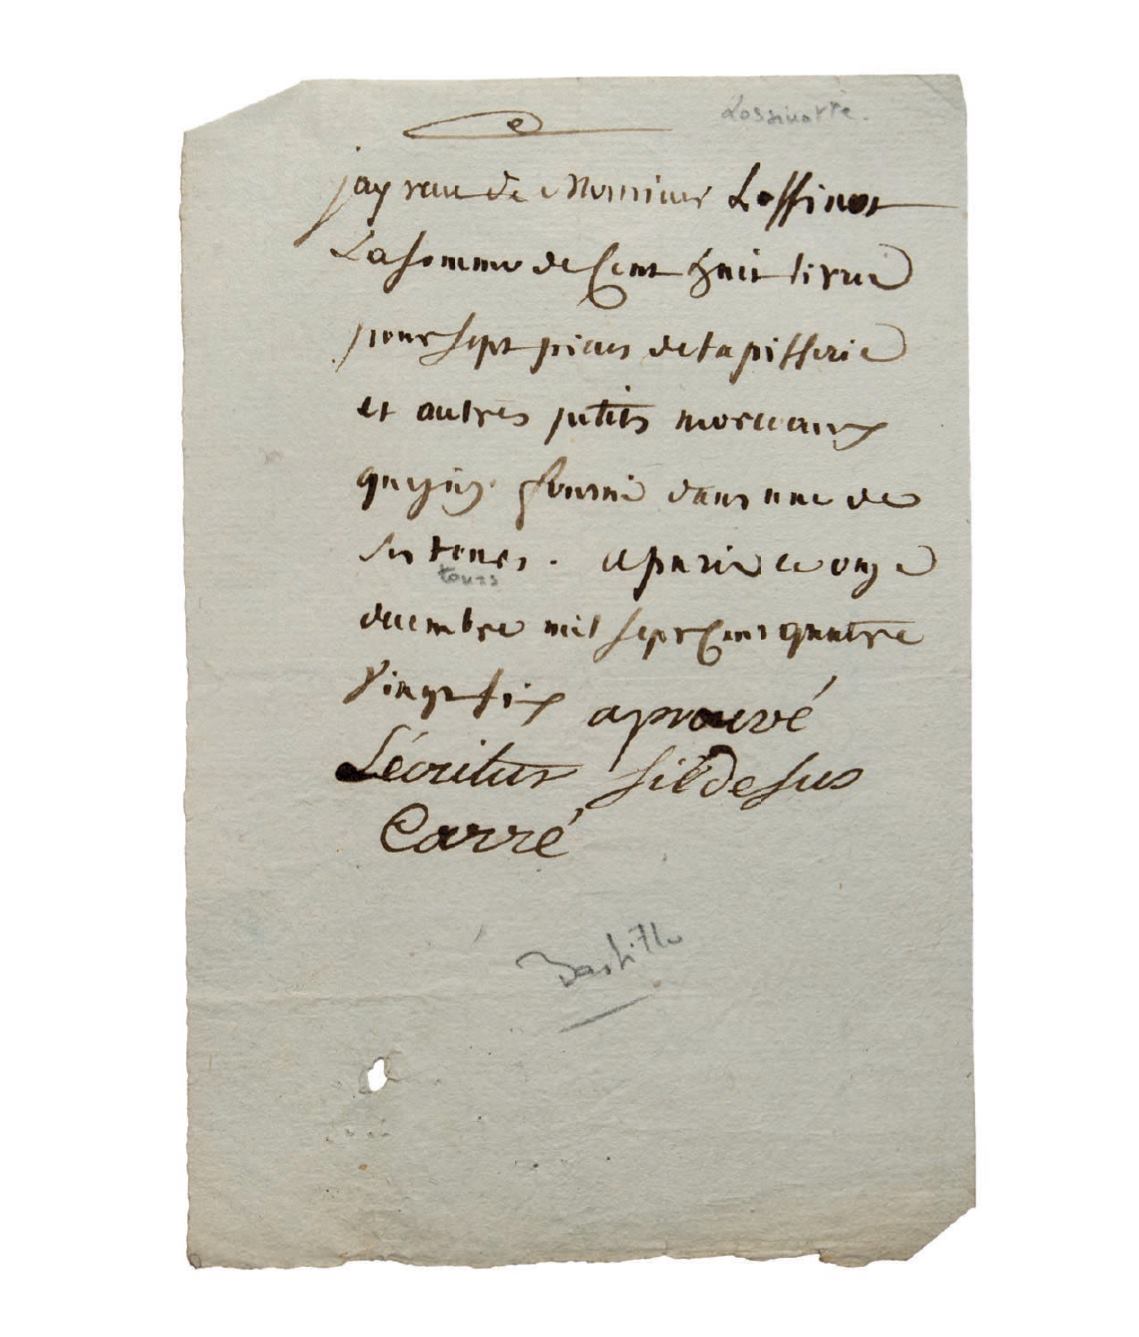 Lossinotte.
jay reçu de Monsieur Lossinot
La somme de Cent huit livres
pour sept pieces de tapisserie
et autres petits morceaux
que jay fourni dans une de
ses tours. a paris le onze
tours
decembre mil sept Cent quatre
vingt six aprouvé
Lécriture sit desus
Carré
Bastille